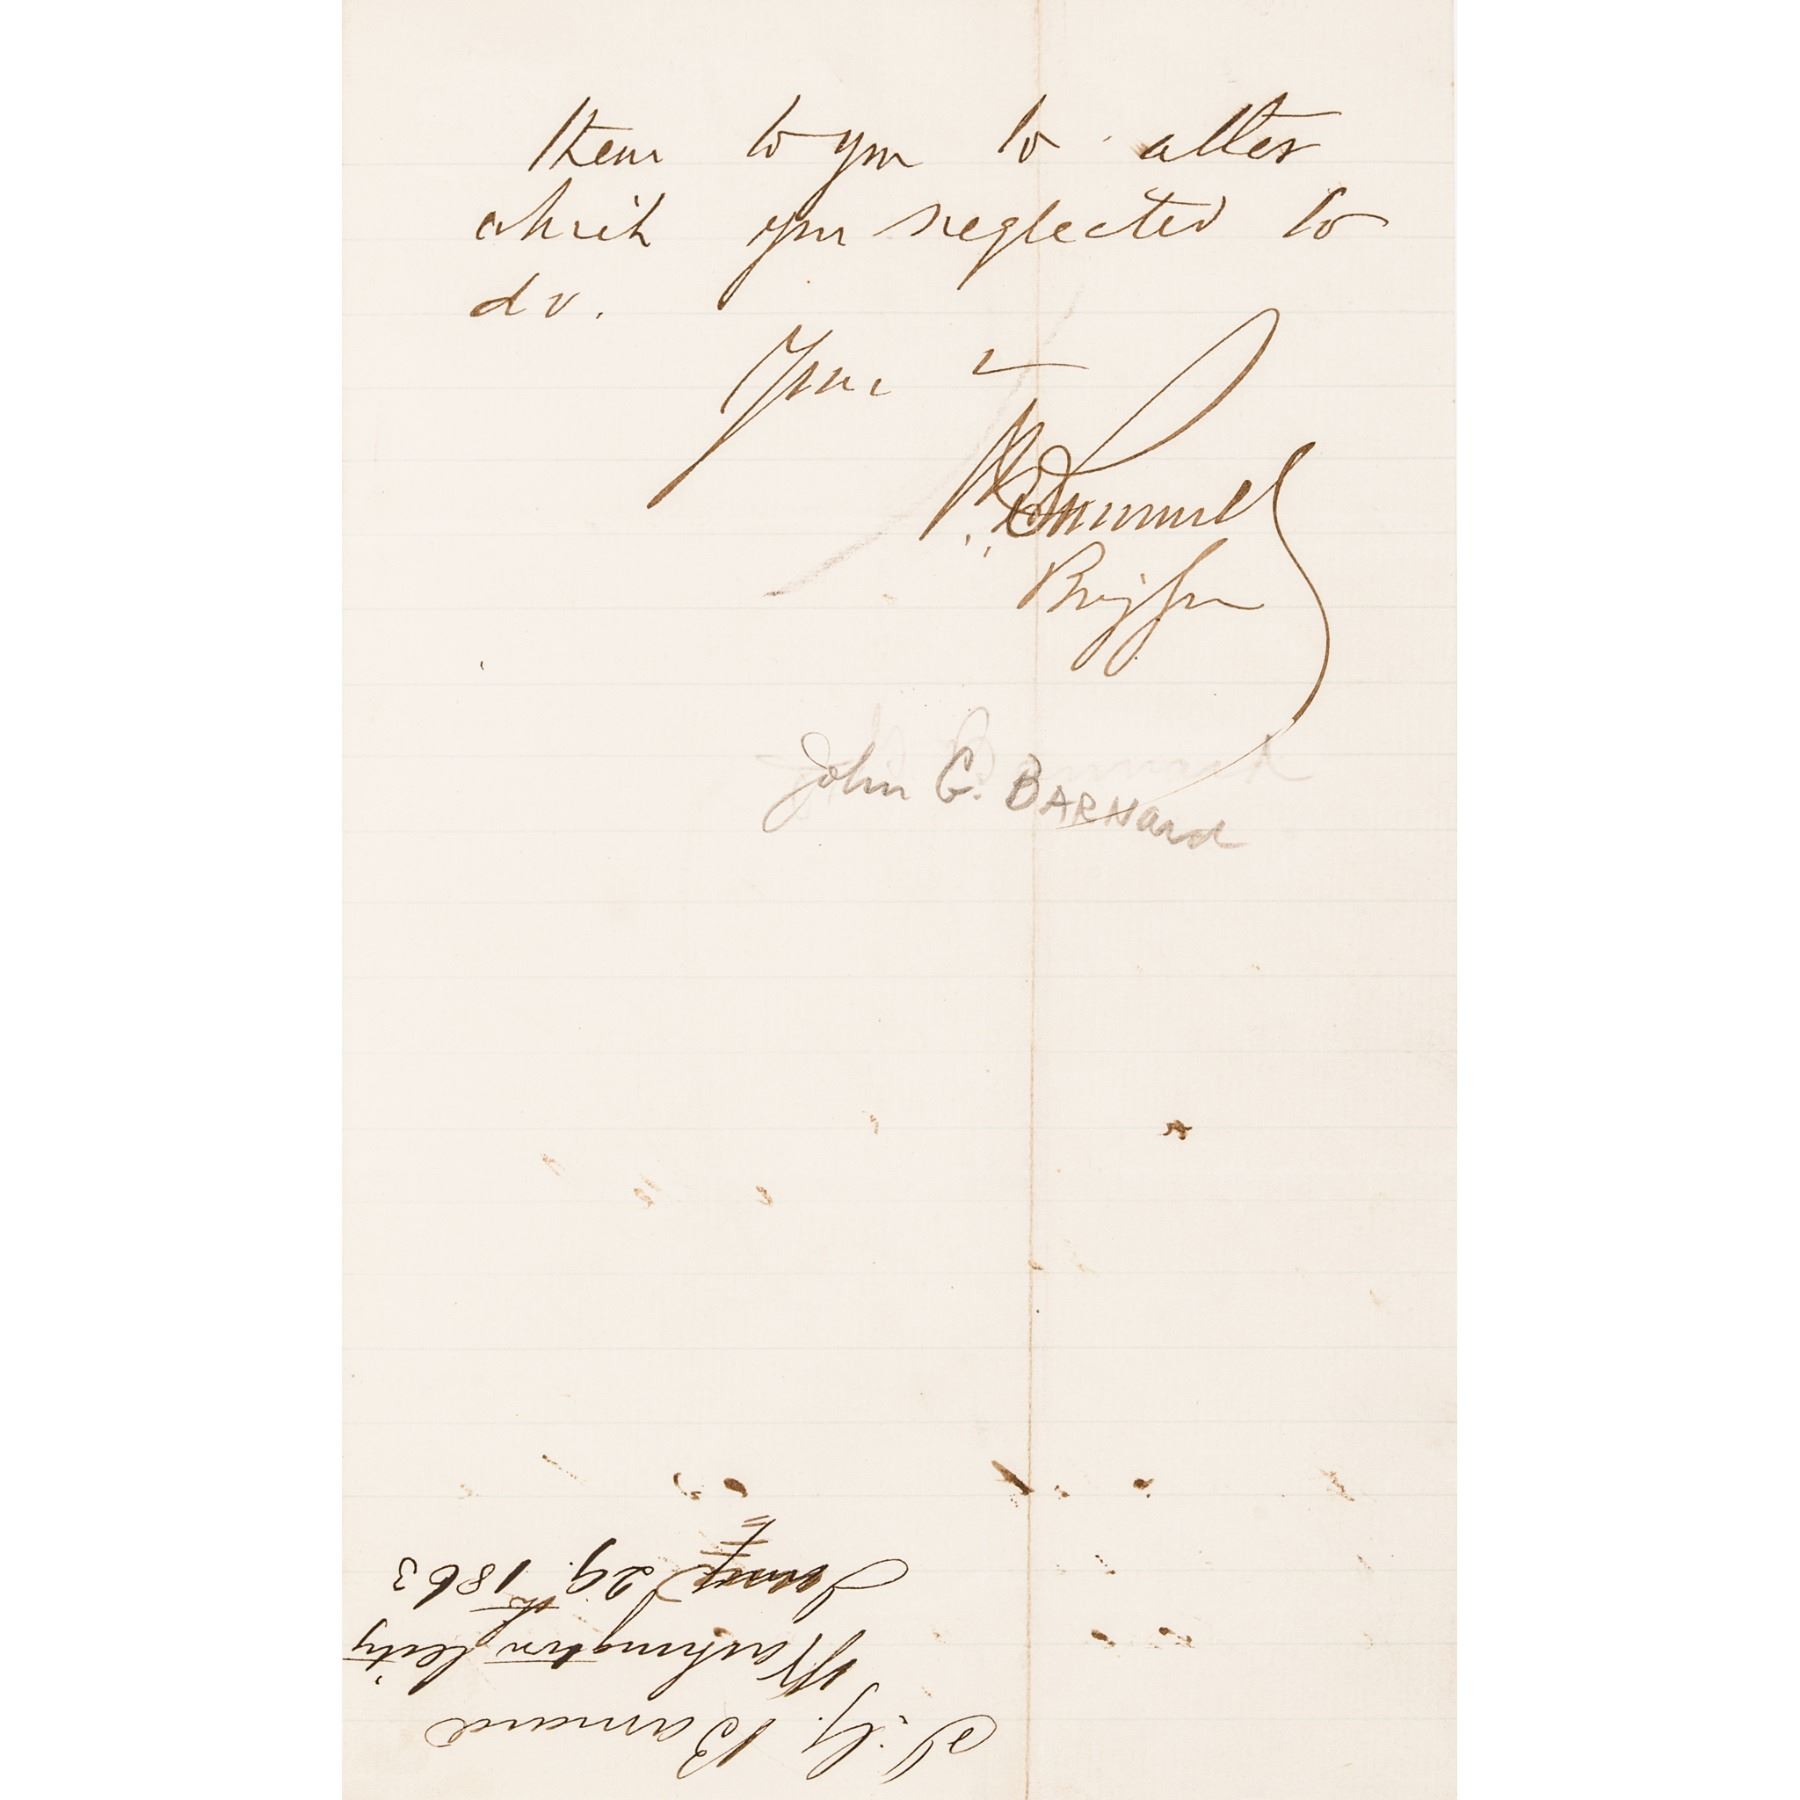 them to you to alter
which you neglected to
do.
Yours
Brig Gen
John G. BARNard
J. G. Barnard
Washington City
29th 1863